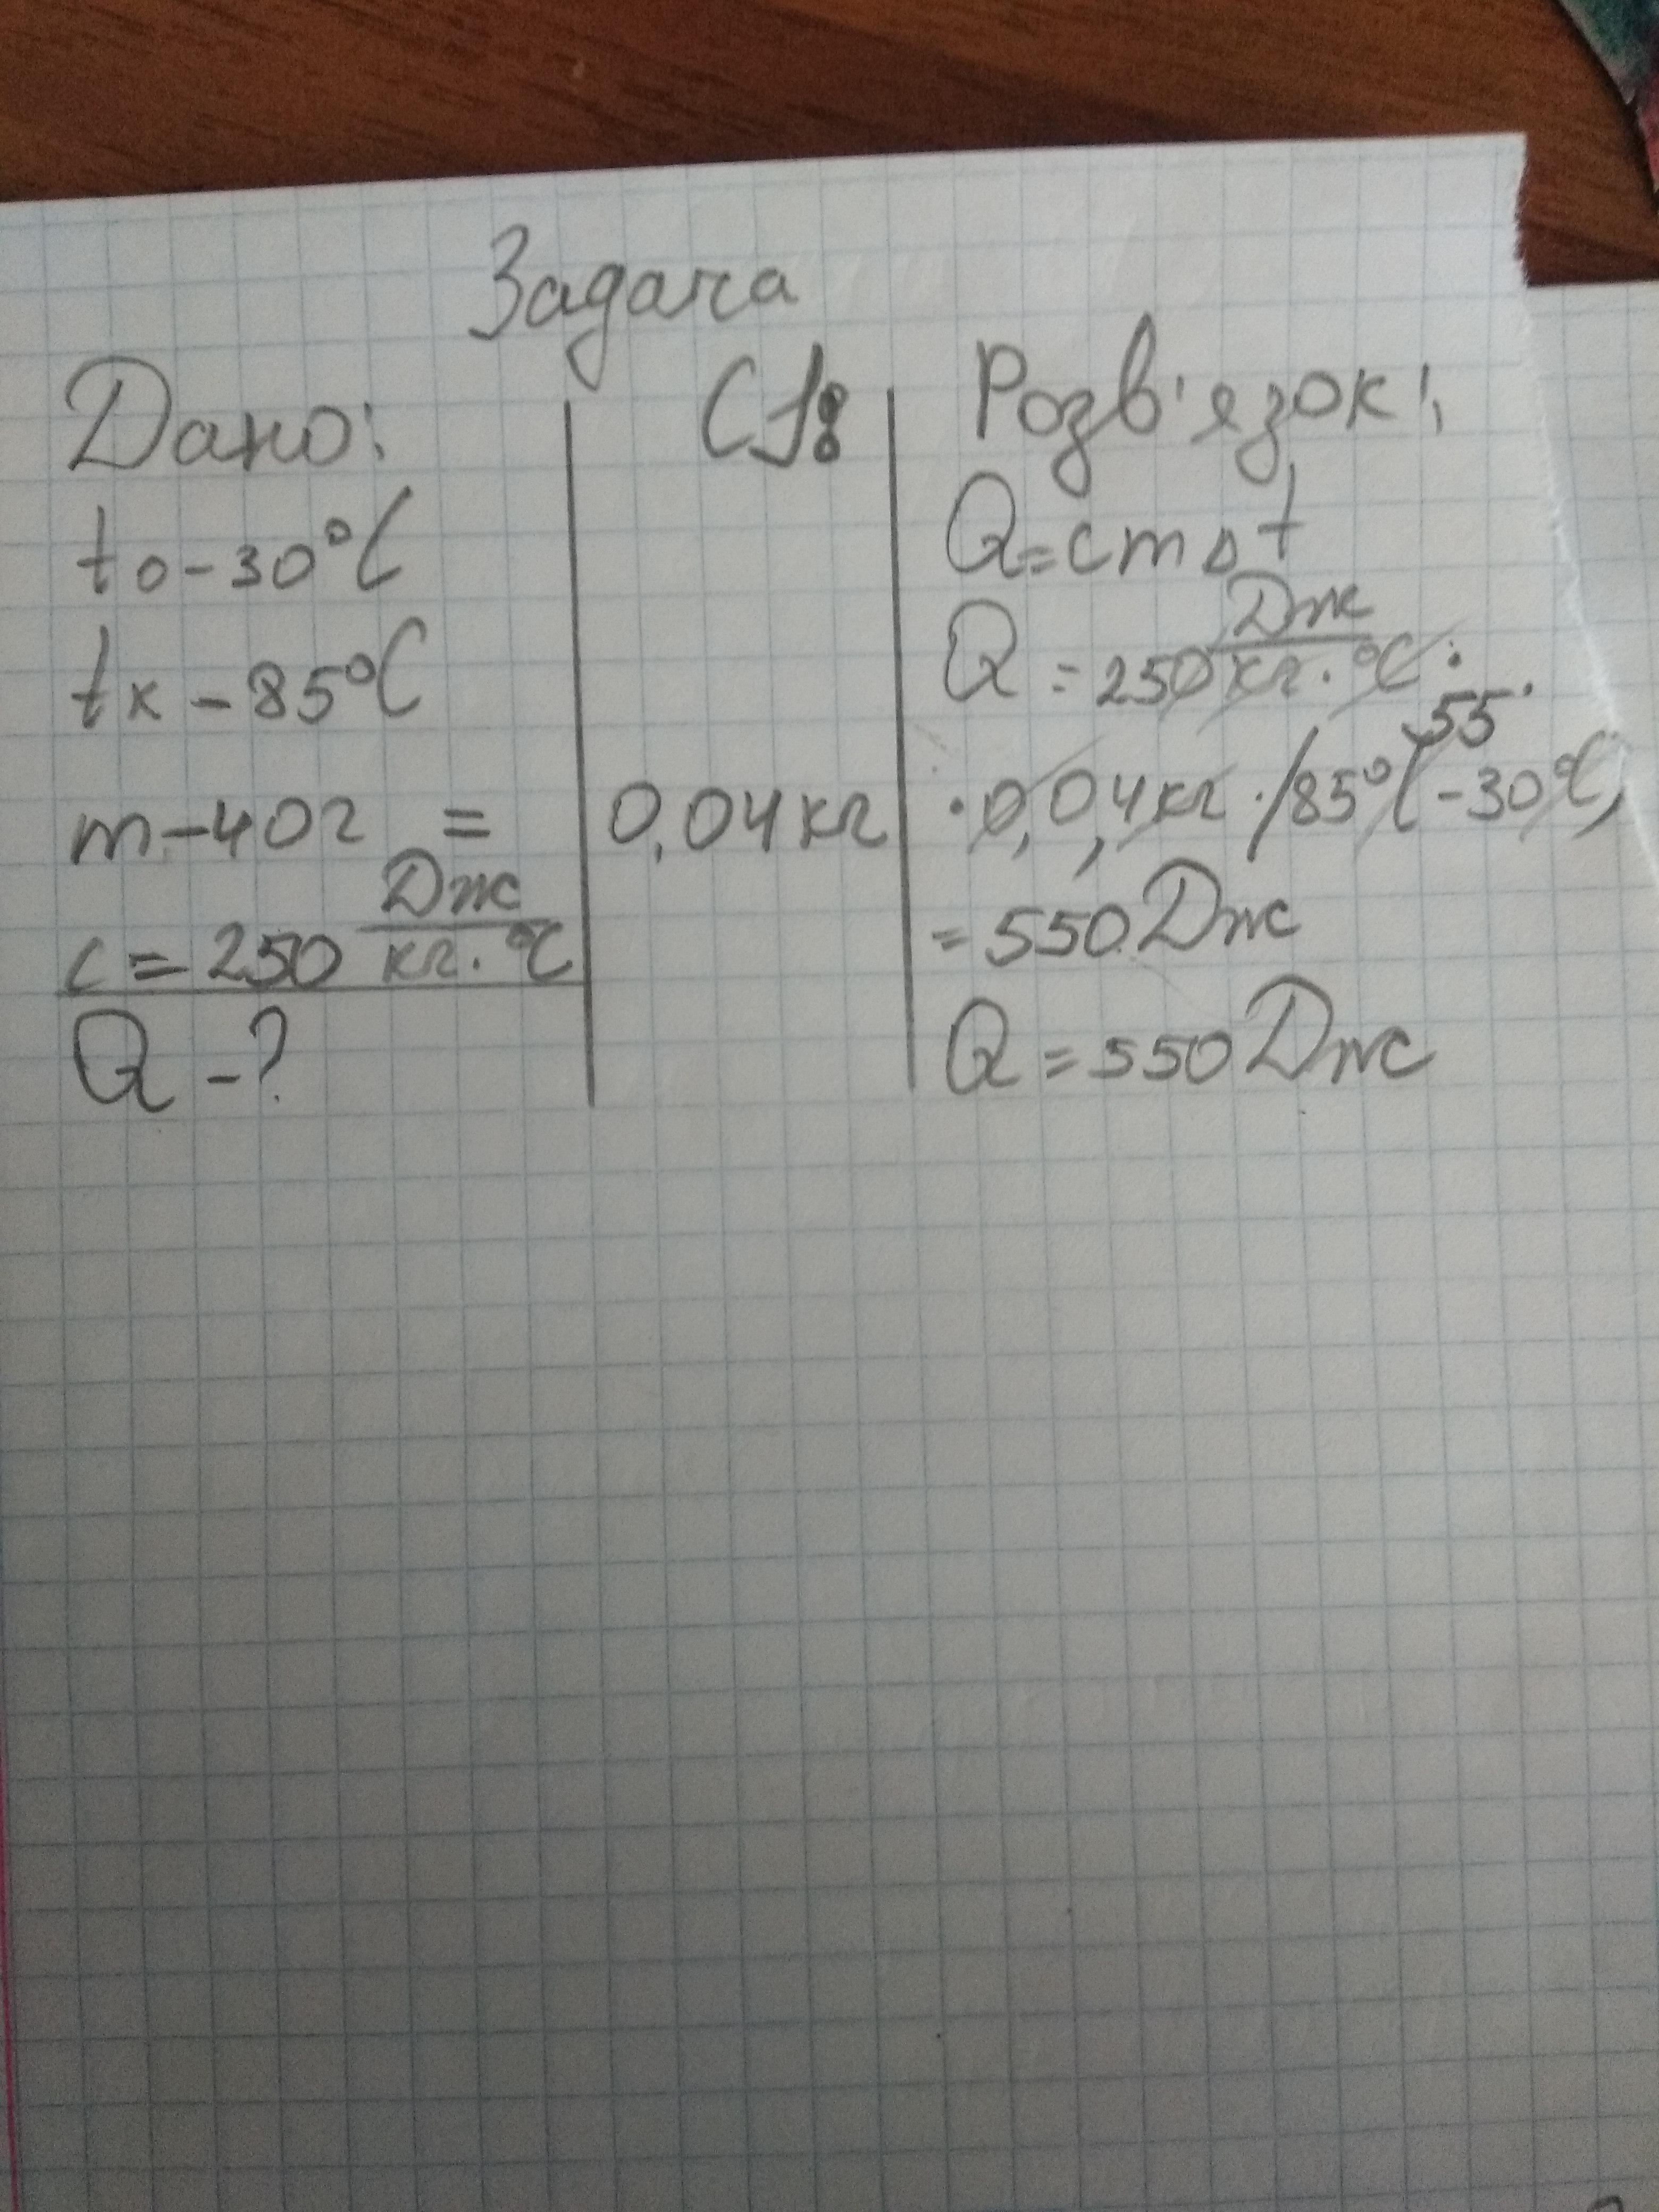 Задача
Дано:
to-30°C
tx-85°C
m-40г =
c=250 Дж/кг·°C
Q-?
СІ:
0,04кг
Розв'язок:
Q=cm△t
Q=250 Дж/кг·°C ·
55
·0,04кг·(85°C-30°C)
=550Дж
Q=550Дж